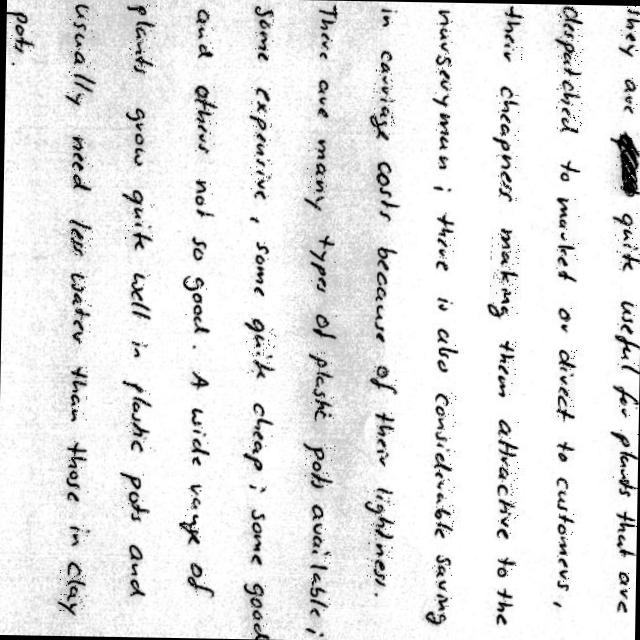 they are quite useful for plants that are
despatched to market or direct to customers,
their cheapness making them attractive to the
nurseryman; there is also considerable saving
in carriage costs because of their lightness.
There are many types of plastic pots available;
some expensive, some quite cheap; some good
and others not so good. A wide range of
plants grow quite well in plastic pots and
usually need less water than those in clay
pots.